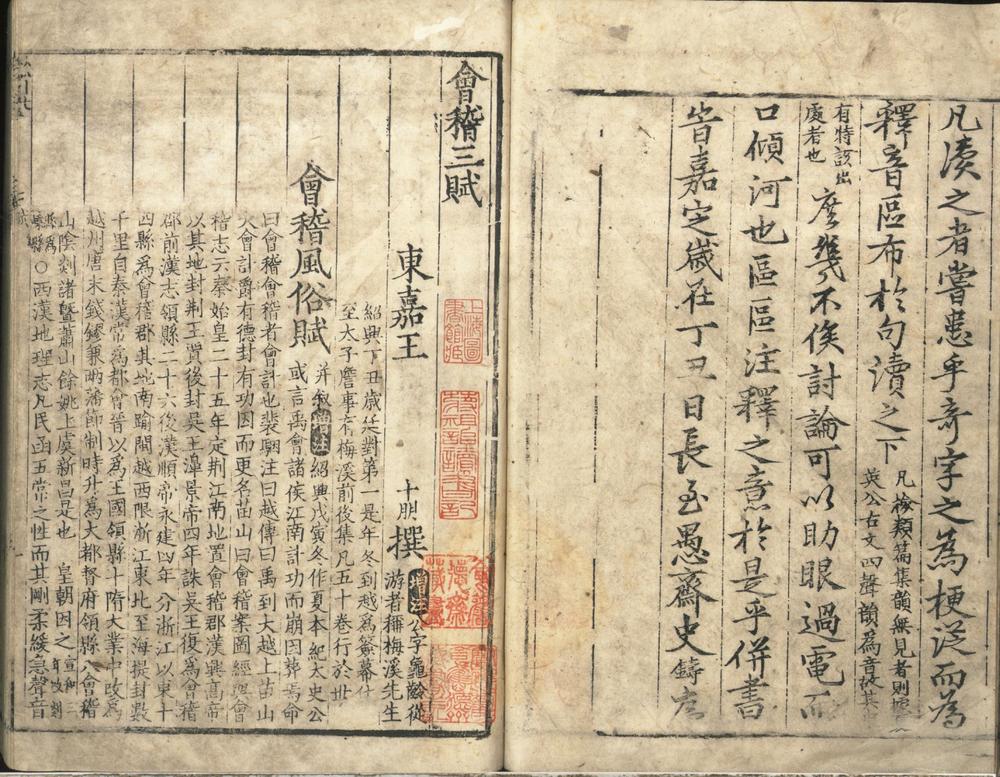 凡讀之者嘗患乎奇字之為梗從而為
釋音區布於句讀之下 凡檢類篇集韻無見者則
英公古文四聲韻為音故其
有特該出
處者也 庶幾不俟討論可以助眼過電而
口傾河也區區注釋之意於是乎併書
昔嘉定歲在丁丑日長至愚齋史鑄序
會稽三賦
東嘉王 十朋 撰 增注 公字龜齡從
游者稱梅溪先生
紹興丁丑歲廷對第一是年冬到越為簽幕仕
至太子詹事有梅溪前後集凡五十卷行於世
會稽風俗賦 并叙 增注 紹興戊寅冬作夏本紀太史公
或言禹會諸侯江南計功而崩因葬焉命
曰會稽會稽者會計也裴駰注曰越傳曰禹到大越上苗山
大會計爵有德封有功因而更名苗山曰會稽案圖經與會
稽志云秦始皇二十五年定荆江南地置會稽郡漢興高帝
以其地封荆王賈後封吳王濞景帝四年誅吳王復為會稽
郡前漢志領縣二十六後漢順帝永建四年分浙江以東十
四縣為會稽郡其地南踰閩越西限浙江東北至海提封數
千里自秦漢常為都會晉以為王國領縣十隋大業中改為
越州唐末錢鏐兼兩藩節制時升為大都督府領縣八會稽
山陰剡諸暨蕭山餘姚上虞新昌是也 皇朝因之 宣和三
年改剡
縣為
嵊縣 ○西漢地理志凡民函五常之性而其剛柔緩急聲音
上海圖
書館藏